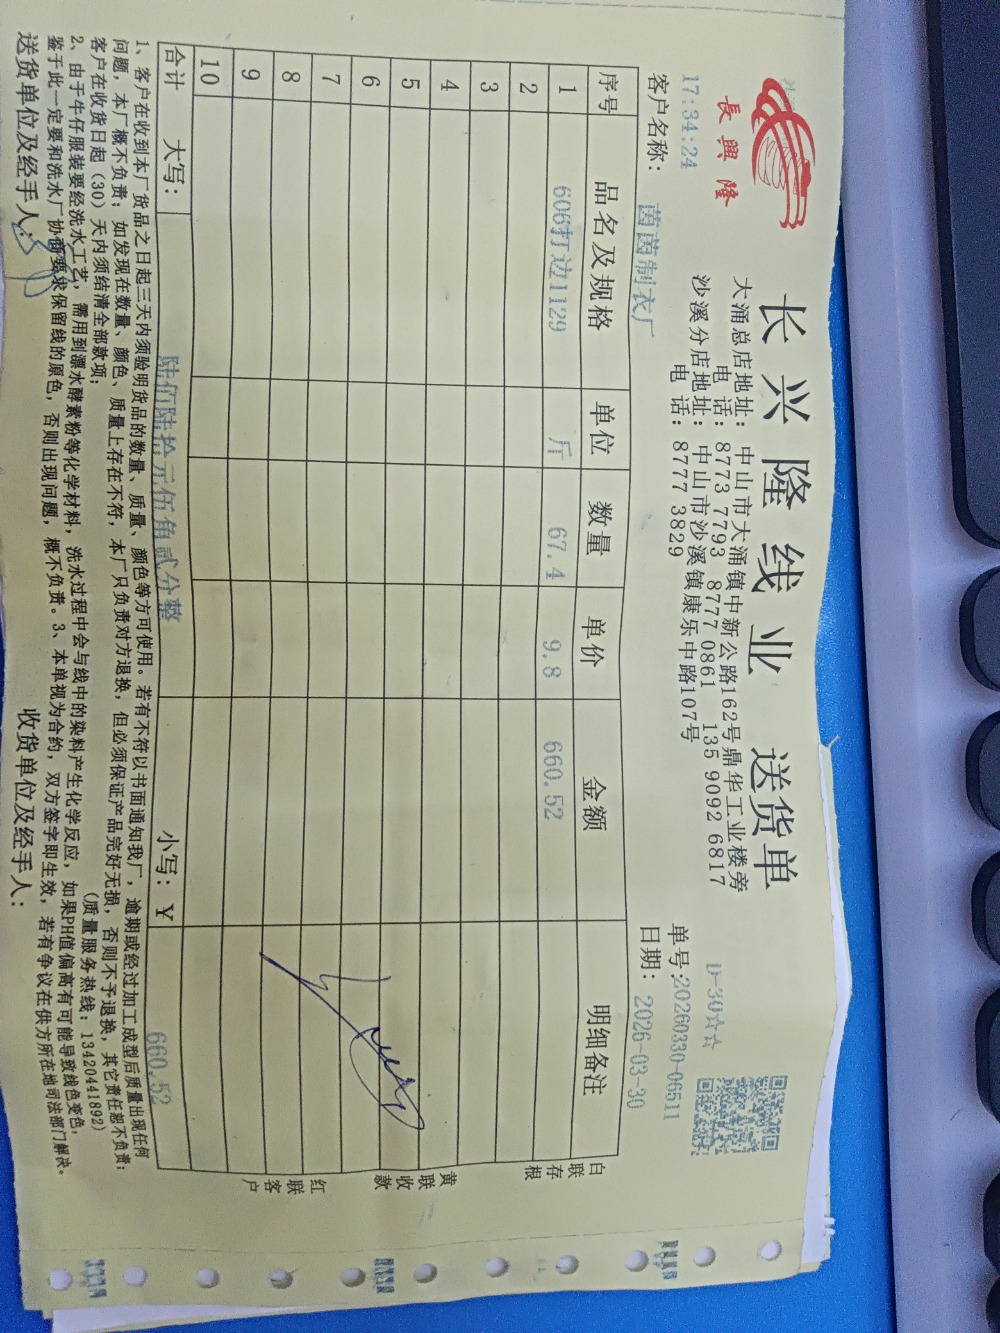 長興隆
长兴隆线业 送货单
大涌总店地址：中山市大涌镇中新公路162号鼎华工业楼旁
电话：8773 7793 8777 0861 135 9092 6817
沙溪分店地址：中山市沙溪镇康乐中路107号
电话：8777 3829
17:34:24
D-30☆☆
单号:20260330-06511
客户名称：茵茵制衣厂
日期：2026-03-30
序号 品名及规格 单位 数量 单价 金额 明细备注
1 606打边1129 斤 67.4 9.8 660.52
2
3
4
5
6
7
8
9
10
合计 大写：陆佰陆拾元伍角贰分整 小写：¥ 660.52
白联存根
黄联收款
红联客户
1、客户在收到本厂货品之日起三天内须验明货品的数量、质量、颜色等方可使用。若有不符以书面通知我厂，逾期或经过加工成型后质量出现任何
问题，本厂概不负责；如发现在数量、颜色、质量上存在不符，本厂只负责对方退换，但必须保证产品完好无损，否则不予退换，其它责任恕不负责；
客户在收货日起（30）天内须结清全部款项； （质量服务热线：13420441892）
2、由于牛仔服装要经洗水工艺，需用到漂水酵素粉等化学材料，洗水过程中会与线中的染料产生化学反应，如果PH值偏高有可能导致线色变色，
鉴于此一定要和洗水厂协商要求保留线的原色，否则出现问题，概不负责。3、本单视为合约，双方签字即生效，若有争议在供方所在地司法部门解决。
送货单位及经手人：
收货单位及经手人：